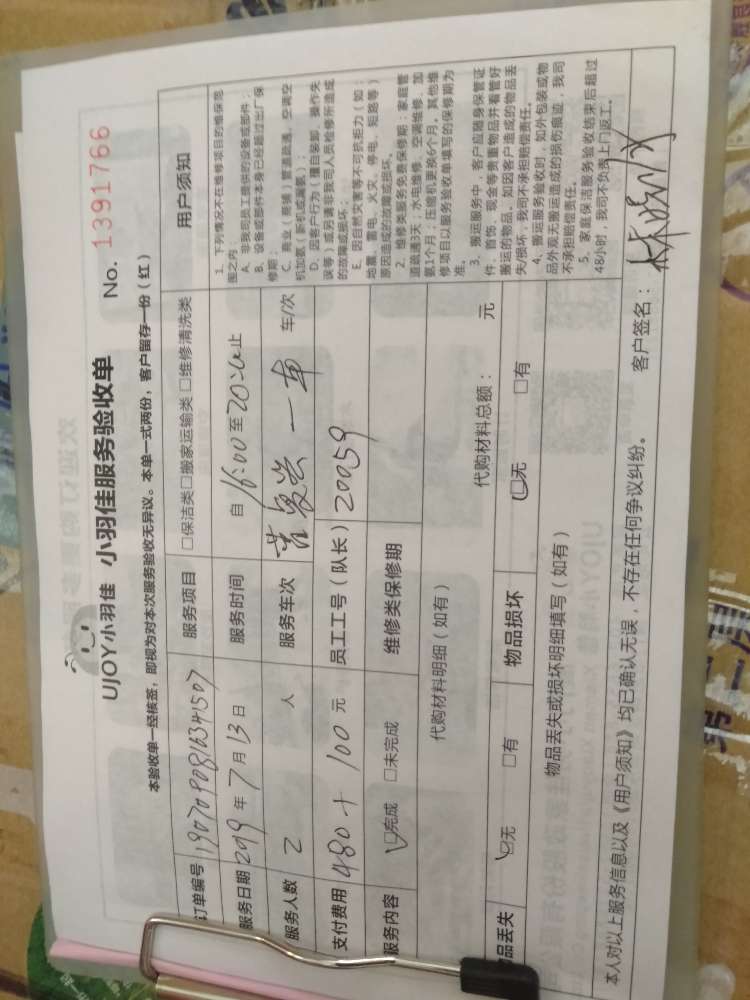 UJOY小羽佳 小羽佳服务验收单 No. 1391766
本验收单一经核签，即视为对本次服务验收无异议。本单一式两份，客户留存一份（红）
订单编号 190709081634507 服务项目 □保洁类□搬家运输类 □维修清洗类
服务日期 2019 年 7 月 13 日 服务时间 自 16:00 至 20:00 止
服务人数 2 人 服务车次 一车 车/次
支付费用 480+100 元 员工工号（队长） 20059
服务内容 ☑完成 □未完成 维修类保修期
代购材料明细（如有） 代购材料总额： 元
品丢失 ☑无 □有 物品损坏 ☑无 □有
物品丢失或损坏明细填写（如有）
用户须知
1、下列情况不在维修项目的维保范
围之内：
A、非我司员工提供的设备或部件；
B、设备或部件本身已经超过出厂保
修期；
C、商业（商铺）管道疏通、空调空
机加氨（新机或漏氨）；
D、因客户行为（擅自装卸、操作失
误等）或另请非我司人员检修所造成
的故障或损坏；
E、因自然灾害等不可抗拒力（如：
地震、雷电、火灾、停电、短路等）
原因造成的故障或损坏。
2、维修类服务免费保修期：家庭管
道疏通3天；水电维修、空调维修、加
氨1个月；压缩机更换6个月。其他维
修项目以服务验收单填写的保修期为
准。
3、搬运服务中，客户应随身保管证
件、首饰、现金等贵重物品并看管好
搬运的物品。如因客户造成的物品丢
失/损坏，我司不承担赔偿责任。
4、搬运服务验收时，如外包装或物
品外观无搬运造成的损伤痕迹，我司
不承担赔偿责任。
5、家庭保洁服务验收结束后超过
48小时，我司不负责上门返工。
本人对以上服务信息以及《用户须知》均已确认无误，不存在任何争议纠纷。 客户签名：